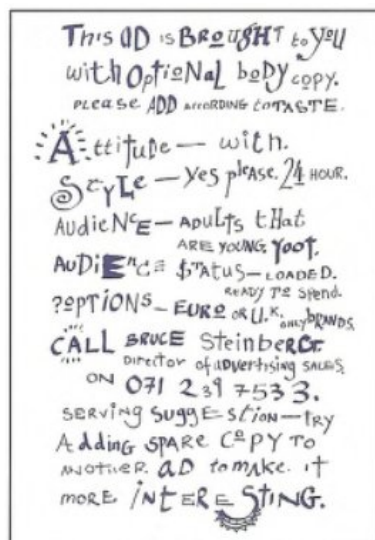 THiS aD iS BRoUgHT to YoU
with OpTioNaL boDY copy.
PLEaSe ADD AccoRDING toTASTE.
Attitude — with.
StyLe — Yes pleAsE. 24 HOUR.
AuDiENcE — ADuLTS tHat
ARE YOUNG YOOT.
AuDiENcE $TATUS — LOADED.
READY To SpEnd.
?oPTIONS — EURO OR U.K. ONLY BRANDS.
CALL BRUCE SteinbeRG.
DirEcToR of aDvertising SALES,
ON 071 239 7533.
SERViNg SuggEstion — tRY
Adding SPARE CoPY TO
ANOTHER aD to makE it
moRE iNtERESTiNG.